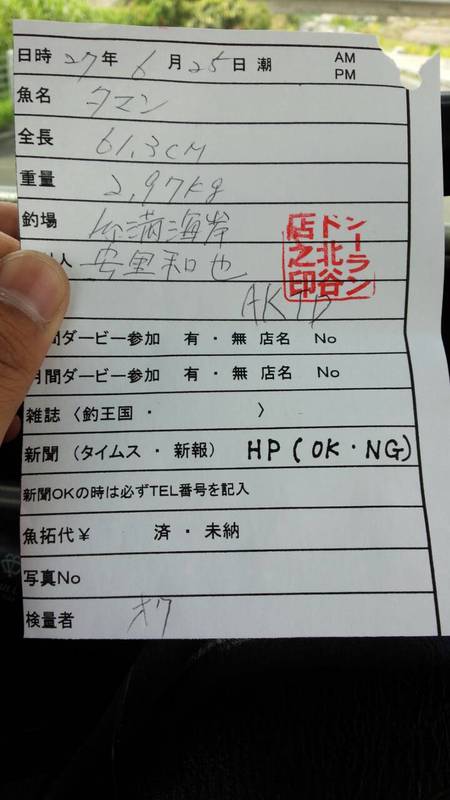 日時 27年 6月 25日 潮 AM PM
魚名 タマン
全長 61.3cm
重量 2,97kg
釣場 糸満海岸
人 安里和也
シーランド北谷店之印
AKTD
間ダービー参加 有・無 店名 No
月間ダービー参加 有・無 店名 No
雑誌〈釣王国・ 〉
新聞 (タイムス・新報) HP(OK・NG)
新聞OKの時は必ずTEL番号を記入
魚拓代¥ 済・未納
写真No
検量者 オク